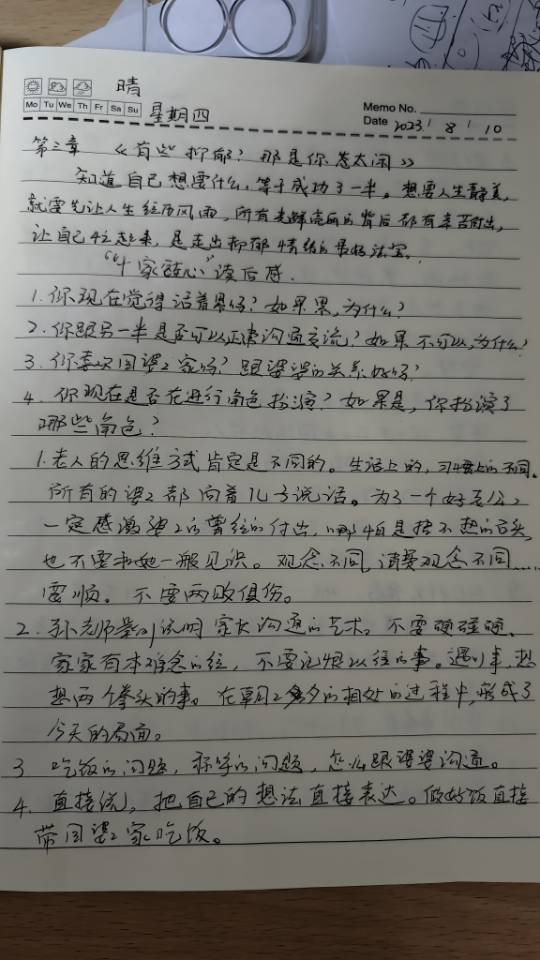 晴
Mo Tu We Th Fr Sa Su
星期四
Memo No.
Date 2023/ 8 / 10
第三章 《有些抑郁？那是你卷太闲》
知道自己想要什么，等于成功了一半。想要人生静美，
就要先让人生经历风雨，所有光鲜亮丽的背后都有辛苦付出，
让自己忙起来，是走出抑郁情绪的最好法宝。
读后感.
1.你现在觉得活着累吗？如果累，为什么？
2.你跟另一半是否可以正常沟通交流？如果不可以，为什么？
3.你喜欢回婆2家吗？跟婆婆的关系好吗？
4.你现在是否在进行角色扮演？如果是，你扮演了
哪些角色？
1.老人的思维方式肯定是不同的。生活上的，习惯上的不同。
所有的婆2都向着儿子说话。为了一个好老公2
一定感激婆2的曾经的付出，哪怕是捂不热的石头
也不要和她一般见识。观念不同，请爱观念不同……
要顺。不要两败俱伤。
2.孙老师举例说明家长沟通的艺术。不要硬碰硬、
家家有本难念的经，不要记恨以往的事。遇到事，想
想两个拳头的事。在草日2多夕的相处的过程中，形成了
今天的局面。
3 吃饭的问题，称呼的问题，怎么跟婆婆沟通。
4.直接说，把自己的想法直接表达。做好饭直接
带回婆2家吃饭。